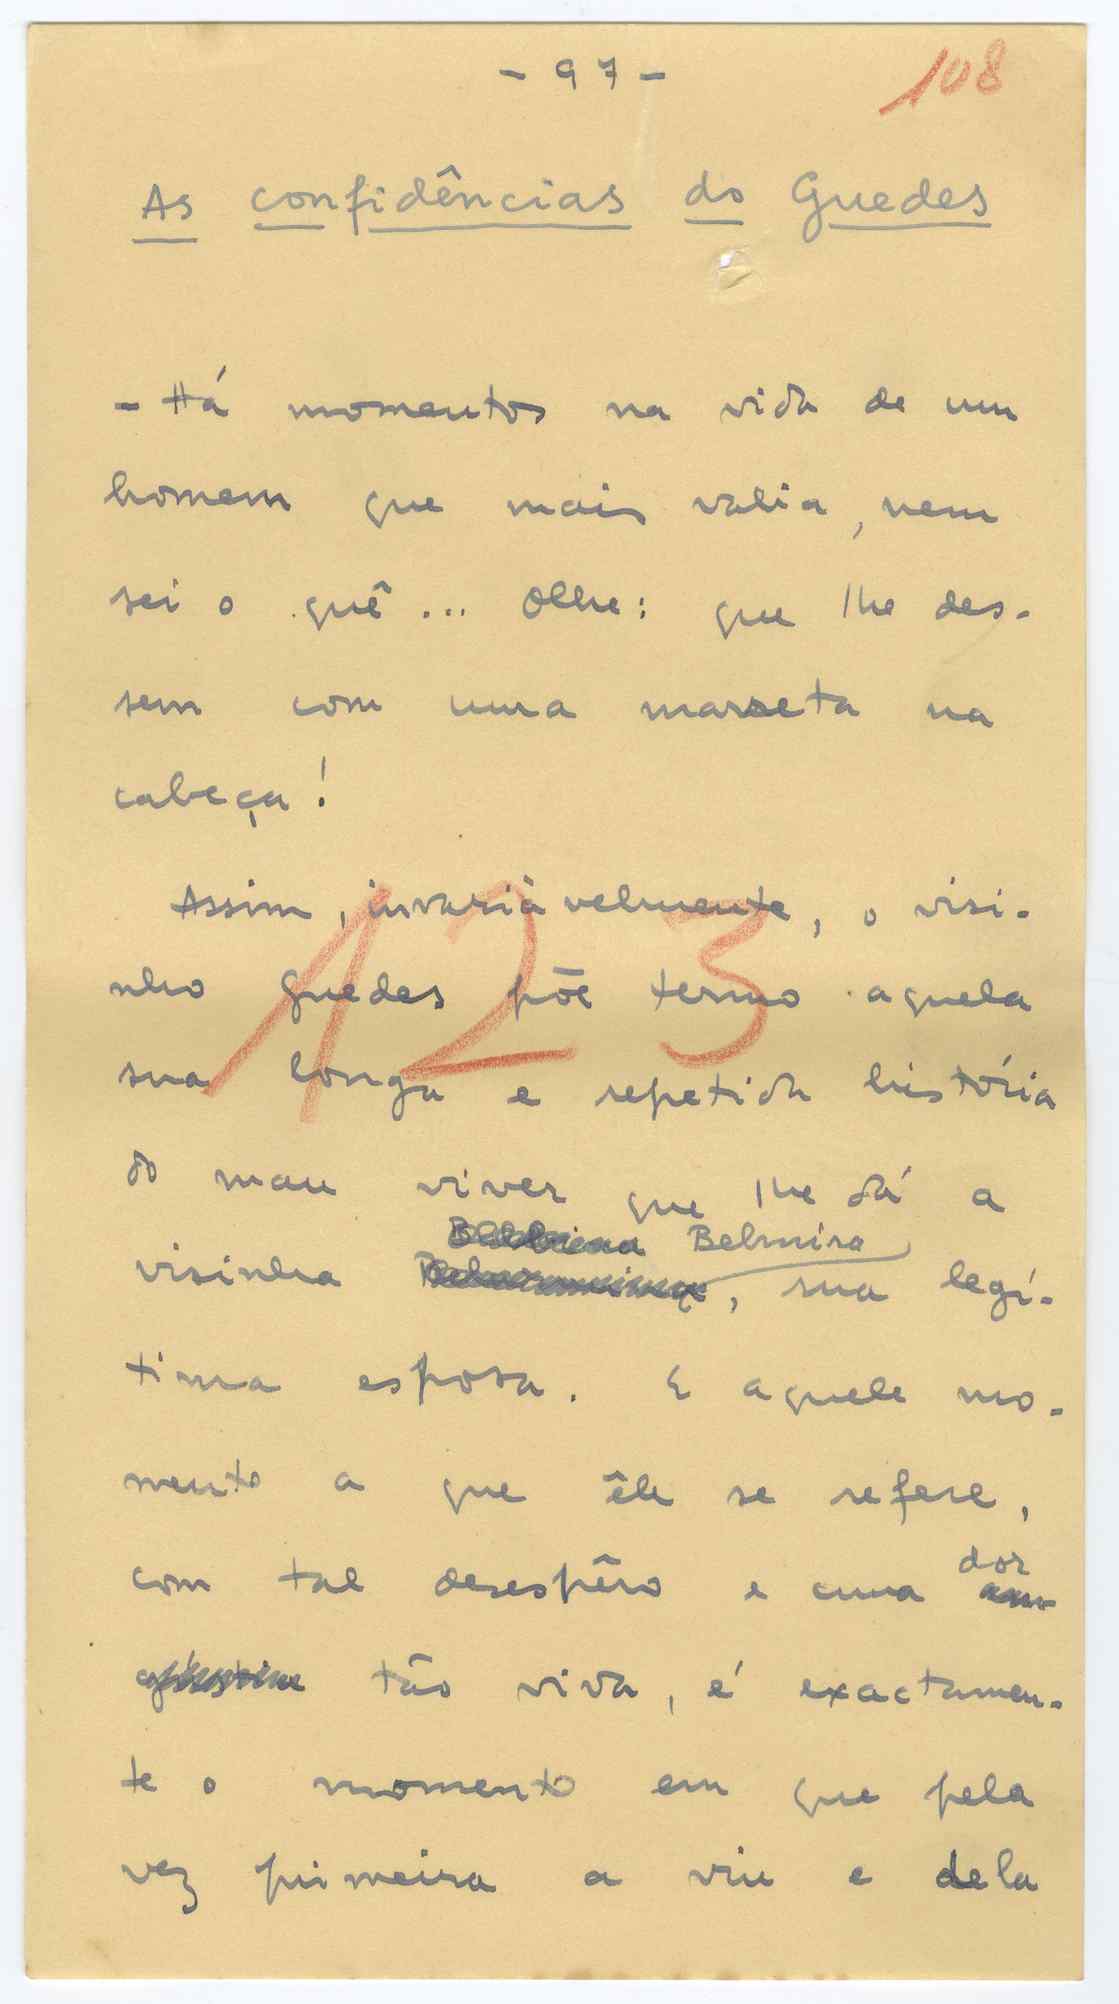 - 97 -
108
As confidências do Guedes
- Há momentos na vida de um
homem que mais valia, nem
sei o quê... Olhe: que lhe des-
sem com uma marreta na
cabeça!
Assim, invariàvelmente, o visi-
nho Guedes põe termo aquela
sua longa e repetida história
123
do mau viver que lhe dá a
Belmira
visinha , sua legí-
tima esposa. E aquele mo-
mento a que êle se refere,
com tal desespêro e uma dor
tão viva, é exactamen-
te o momento em que pela
vez primeira a viu e dela